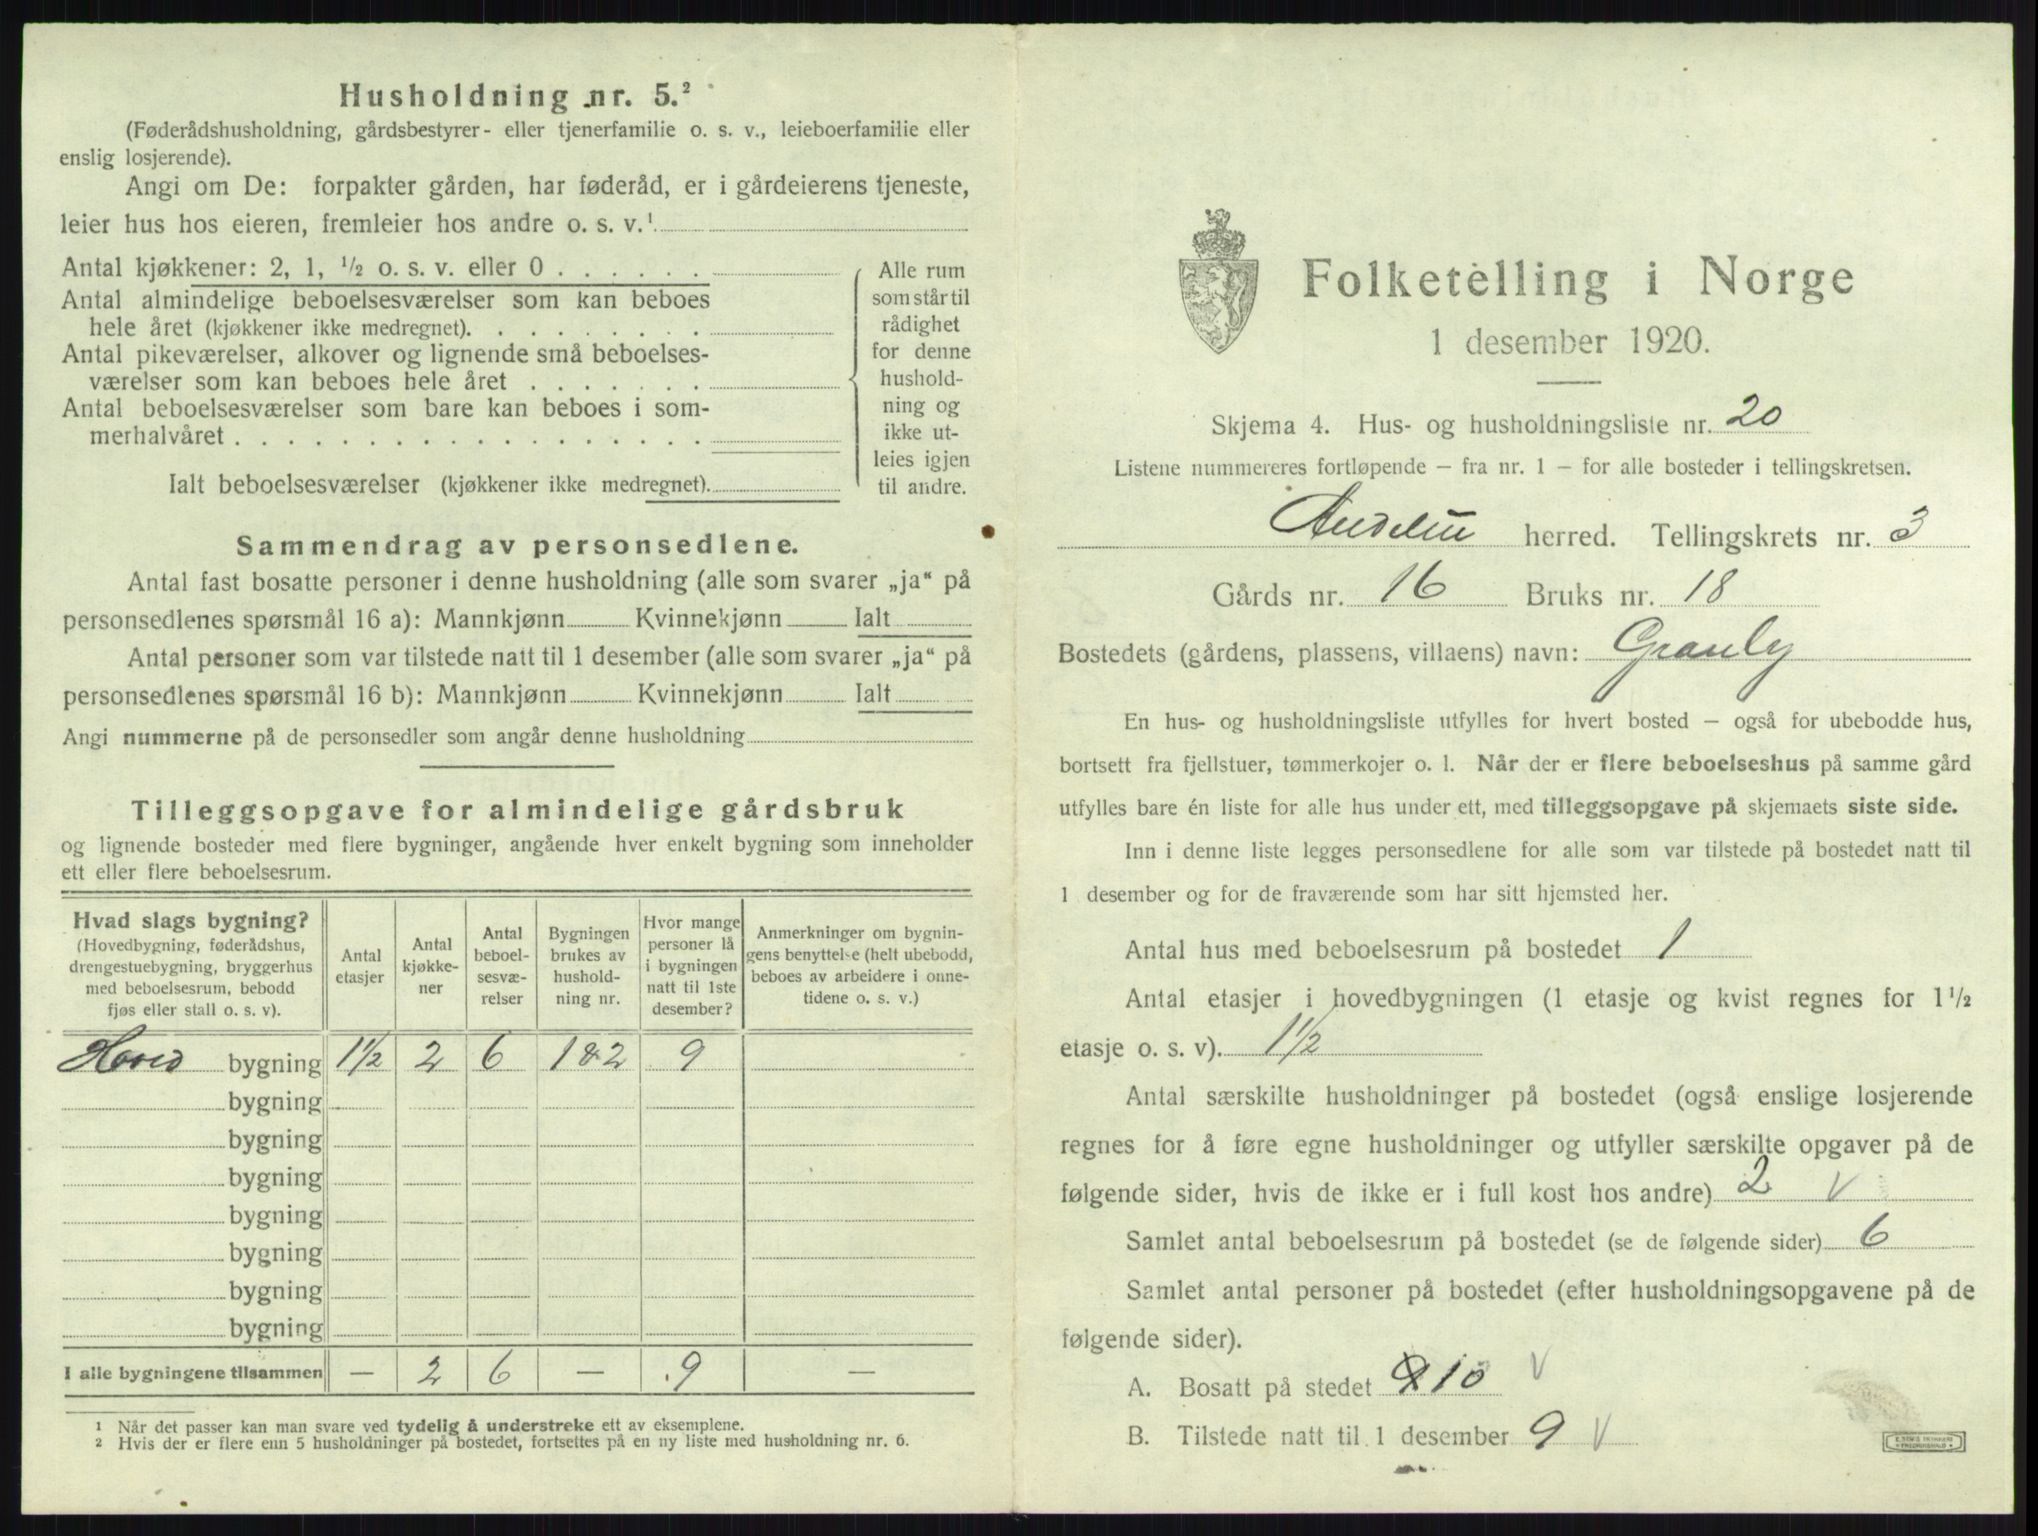 Husholdning nr. 5.²
(Føderådshusholdning, gårdsbestyrer- eller tjenerfamilie o. s. v., leieboerfamilie eller
enslig losjerende).
Angi om De: forpakter gården, har føderåd, er i gårdeierens tjeneste,
leier hus hos eieren, fremleier hos andre o. s. v.¹
Antal kjøkkener: 2, 1, ½ o. s. v. eller 0 . . . . . .
Antal almindelige beboelsesværelser som kan beboes
hele året (kjøkkener ikke medregnet). . . . . . . . .
Antal pikeværelser, alkover og lignende små beboelses-
værelser som kan beboes hele året . . . . . . .
Antal beboelsesværelser som bare kan beboes i som-
merhalvåret . . . . . . . . . . . . . . . . . .
Ialt beboelsesværelser (kjøkkener ikke medregnet).
Alle rum
som står til
rådighet
for denne
hushold-
ning og
ikke ut-
leies igjen
til andre.
Sammendrag av personsedlene.
Antal fast bosatte personer i denne husholdning (alle som svarer „ja“ på
personsedlenes spørsmål 16 a): Mannkjønn Kvinnekjønn Ialt
Antal personer som var tilstede natt til 1 desember (alle som svarer „ja“ på
personsedlenes spørsmål 16 b): Mannkjønn Kvinnekjønn Ialt
Angi nummerne på de personsedler som angår denne husholdning
Tilleggsopgave for almindelige gårdsbruk
og lignende bosteder med flere bygninger, angående hver enkelt bygning som inneholder
ett eller flere beboelsesrum.
Hvad slags bygning?
(Hovedbygning, føderådshus,
drengestuebygning, bryggerhus
med beboelsesrum, bebodd
fjøs eller stall o. s. v).
Antal
etasjer
Antal
kjøkke-
ner
Antal
beboel-
sesvæ-
relser
Bygningen
brukes av
hushold-
ning nr.
Hvor mange
personer lå
i bygningen
natt til 1ste
desember?
Anmerkninger om bygnin-
gens benyttelse (helt ubebodd,
beboes av arbeidere i onne-
tidene o. s. v.)
Hoved bygning 1½ 2 6 1&2 9
bygning
bygning
bygning
bygning
bygning
bygning
bygning
I alle bygningene tilsammen — 2 6 — 9 —
¹ Når det passer kan man svare ved tydelig å understreke ett av eksemplene.
² Hvis der er flere enn 5 husholdninger på bostedet, fortsettes på en ny liste med husholdning nr. 6.
Folketelling i Norge
1 desember 1920.
Skjema 4. Hus- og husholdningsliste nr. 20
Listene nummereres fortløpende – fra nr. 1 – for alle bosteder i tellingskretsen.
herred. Tellingskrets nr. 3
Gårds nr. 16 Bruks nr. 18
Bostedets (gårdens, plassens, villaens) navn: Granly
En hus- og husholdningsliste utfylles for hvert bosted – også for ubebodde hus,
bortsett fra fjellstuer, tømmerkojer o. l. Når der er flere beboelseshus på samme gård
utfylles bare én liste for alle hus under ett, med tilleggsopgave på skjemaets siste side.
Inn i denne liste legges personsedlene for alle som var tilstede på bostedet natt til
1 desember og for de fraværende som har sitt hjemsted her.
Antal hus med beboelsesrum på bostedet 1
Antal etasjer i hovedbygningen (1 etasje og kvist regnes for 1½
etasje o. s. v). 1½
Antal særskilte husholdninger på bostedet (også enslige losjerende
regnes for å føre egne husholdninger og utfyller særskilte opgaver på de
følgende sider, hvis de ikke er i full kost hos andre) 2 v
Samlet antal beboelsesrum på bostedet (se de følgende sider) 6
Samlet antal personer på bostedet (efter husholdningsopgavene på de
følgende sider).
A. Bosatt på stedet 9 10 v
B. Tilstede natt til 1 desember 9 v